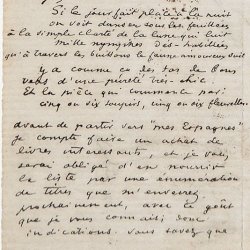 Si le jour fait place à la nuit
on voit danser sous les feuillées
à la simple clarté de la lune qui luit
mille nymphes des-habillées
qu'à travers les buissons le faune amoureux suit
Y a comme ça des fas le bons
vers d'une pureté très-chic
Et la pièce qui commence par
cinq ou six soupirs, cinq ou six fleurettes
avant de partir vers "mes Espagnes"
je compte faire un achat de
livres intéressants, et je vous
serai obligé d'en nourrir
la liste par une énumération
de titres que m'enverrez
prochainement, avec le goût
que je vous connais; donc
indications. Vous savez que